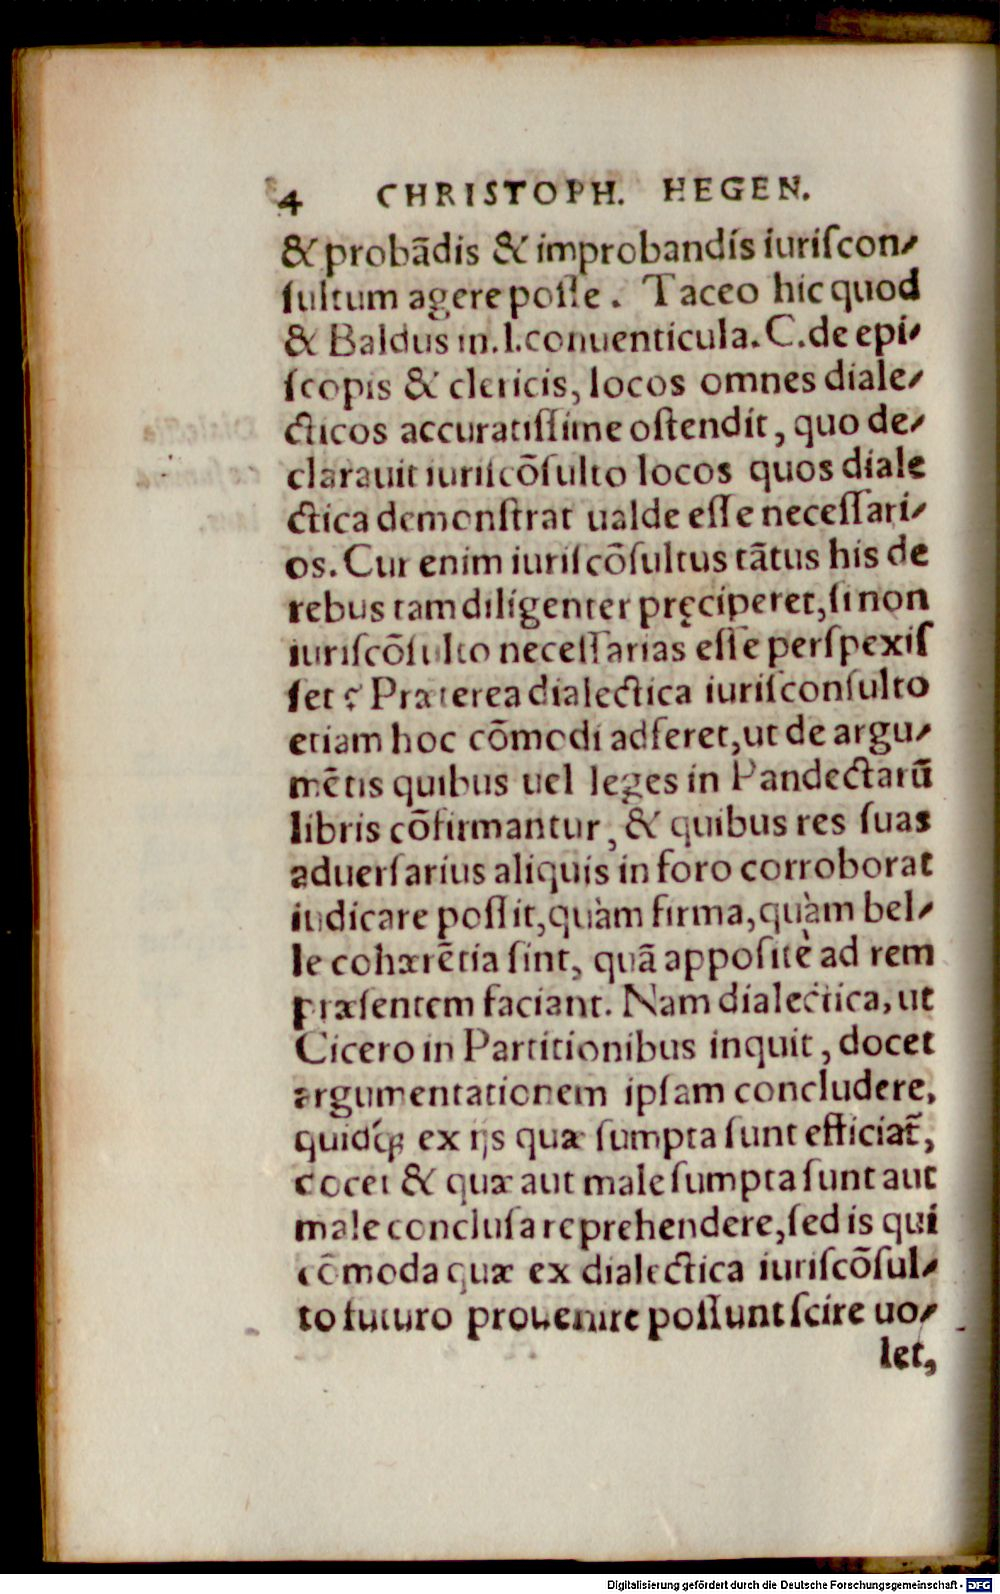 4 CHRISTOPH. HEGEN.
& probãdis & improbandis iuriſcon-
ſultum agere poſſe. Taceo hic quod
& Baldus in.l.conuenticula.C.de epi-
ſcopis & clericis, locos omnes diale-
cticos accuratiſſime oſtendit, quo de-
clarauit iuriſcõſulto locos quos diale
ctica demonſtrat ualde eſſe neceſſari-
os. Cur enim iuriſcõſultus tãtus his de
rebus tam diligenter pręciperet, ſi non
iuriſcõſulto neceſſarias eſſe perſpexiſ
ſet? Præterea dialectica iuriſconſulto
etiam hoc cõmodi adferet, ut de argu-
mẽtis quibus uel leges in Pandectarũ
libris cõfirmantur, & quibus res ſuas
aduerſarius aliquis in foro corroborat
iudicare poſſit, quàm firma, quàm bel-
le cohærẽtia ſint, quã appoſitè ad rem
præſentem faciant. Nam dialectica, ut
Cicero in Partitionibus inquit, docet
argumentationem ipſam concludere,
quidq́ꝫ ex ijs quæ ſumpta ſunt efficiat̃,
docet & quæ aut male ſumpta ſunt aut
male concluſa reprehendere, ſed is qui
cõmoda quæ ex dialectica iuriſcõſul-
to futuro prouenire poſſunt ſcire uo-
let,
Digitalisierung gefördert durch die Deutsche Forschungsgemeinschaft - DFG